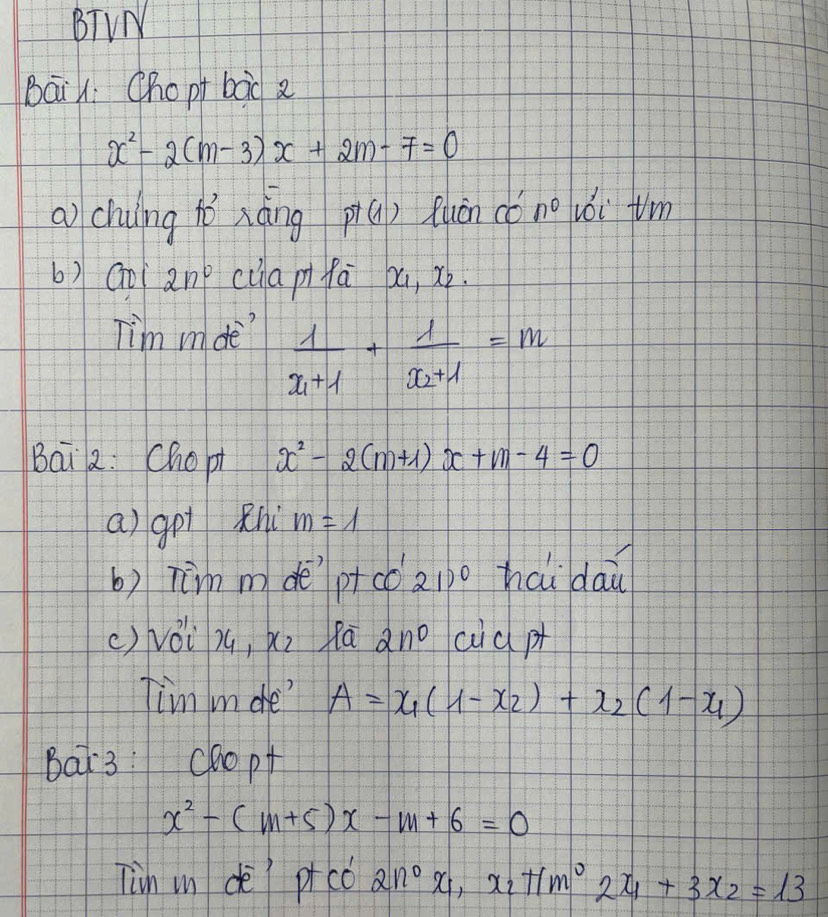 BTVN
Bài 1: Cho pt bậc 2
x² - 2(m-3)x + 2m - 7 = 0
a) chứng tỏ rằng pt(1) luôn có n⁰ với ∀m
b) Gọi 2n⁰ của pt là x₁, x₂.
Tìm m để 1/(x₁+1) + 1/(x₂+1) = m
Bài 2: Cho pt x² - 2(m+1)x + m - 4 = 0
a) gpt khi m = 1
b) Tìm m để pt có 2n⁰ trái dấu
c) Với x₁, x₂ là 2n⁰ của pt
Tìm m để A = x₁(1-x₂) + x₂(1-x₁)
Bài 3: Cho pt
x² - (m+5)x - m + 6 = 0
Tìm m để pt có 2n⁰ x₁, x₂ t/m⁰ 2x₁ + 3x₂ = 13